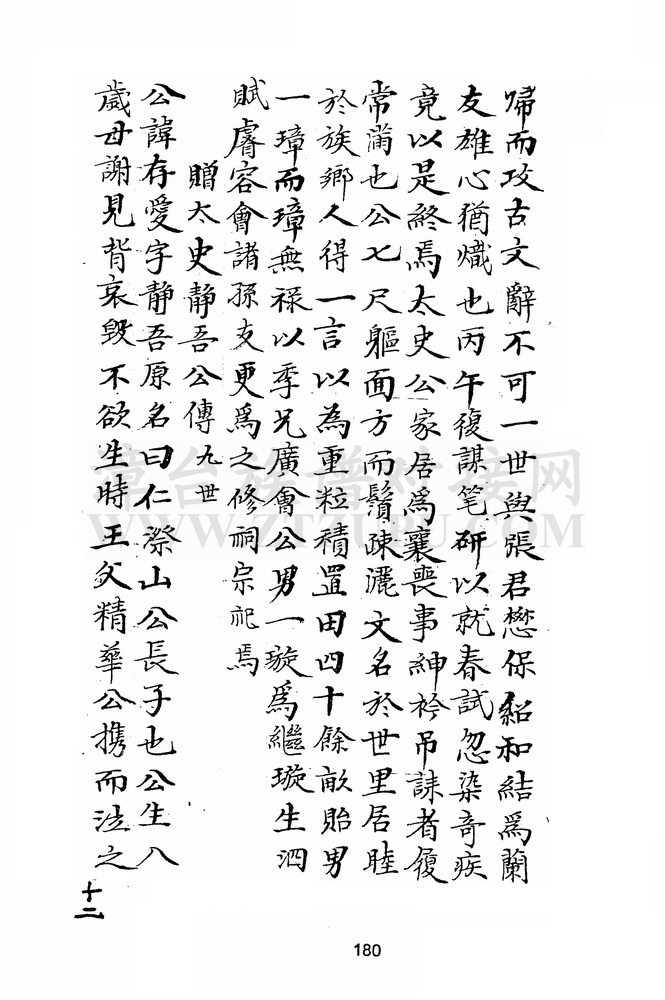 歸而攻古文辭不可一世與張君懋保紹和結爲蘭
友雄心猶熾也丙午復謀笔研以就春試忽染奇疾
竟以是終焉太史公家居爲襄喪事紳衿吊誄者履
常滿也公七尺軀面方而鬚疎灑文名於世里居睦
於族鄉人得一言以為重粒積置田四十餘畝貽男
一璋而璋無祿以季兄廣會公男一璇爲繼璇生泗
賦睿容會諸孫支更爲之修祠宗祀焉
贈太史靜吾公傳九世
公諱存愛字靜吾原名曰仁漈山公長子也公生八
歲母謝見背哀毀不欲生時王父精華公携而泣之
十二
180
章台族譜对接网
WWW.ZTZUPU.COM